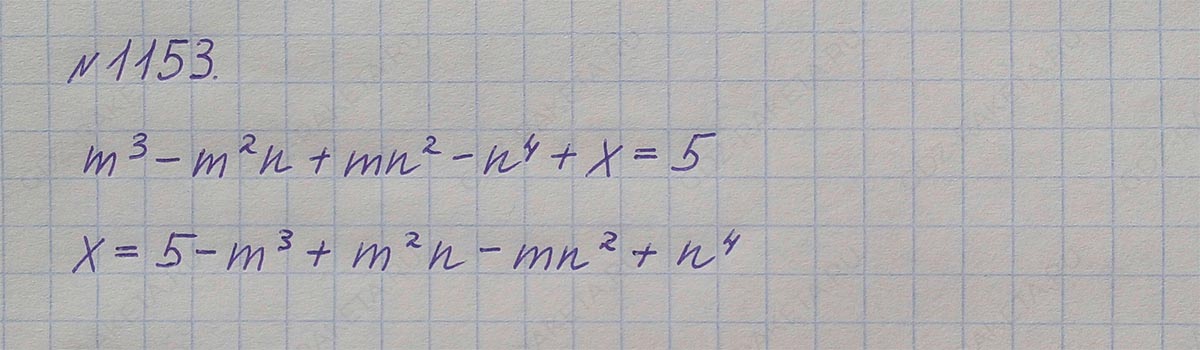 №1153.
m³ – m²n + mn² – n⁴ + x = 5
x = 5 – m³ + m²n – mn² + n⁴